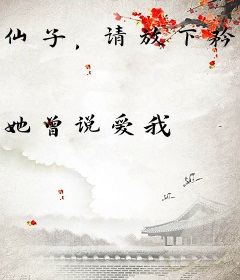 仙子，请放下矜
她曾说爱我